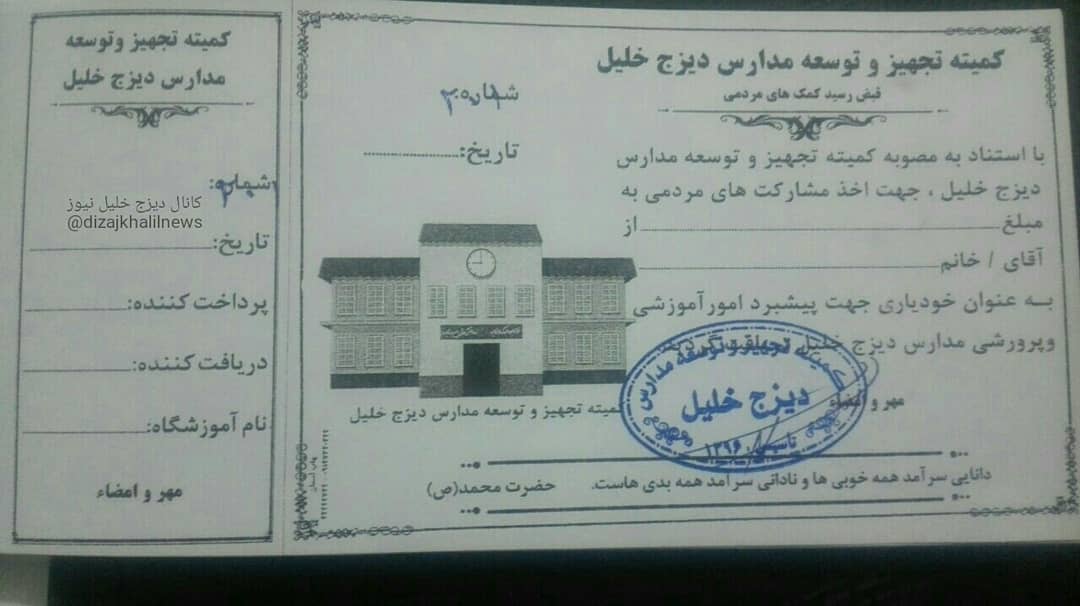 کمیته تجهیز و توسعه مدارس دیزج خلیل
قبض رسید کمک های مردمی
شماره:
تاریخ:
با استناد به مصوبه کمیته تجهیز و توسعه مدارس
دیزج خلیل ، جهت اخذ مشارکت های مردمی به
مبلغ از
آقای / خانم
به عنوان خودیاری جهت پیشبرد امور آموزشی
وپرورشی مدارس دیزج خلیل
مهر و امضاء
کمیته تجهیز و توسعه مدارس
دیزج خلیل
تاسیس ۱۳۹۶
کمیته تجهیز و توسعه مدارس دیزج خلیل
دانایی سرآمد همه خوبی ها و نادانی سرآمد همه بدی هاست. حضرت محمد(ص)
کمیته تجهیز وتوسعه
مدارس دیزج خلیل
شماره:
کانال دیزج خلیل نیوز
@dizajkhalilnews
تاریخ:
پرداخت کننده:
دریافت کننده:
نام آموزشگاه:
مهر و امضاء